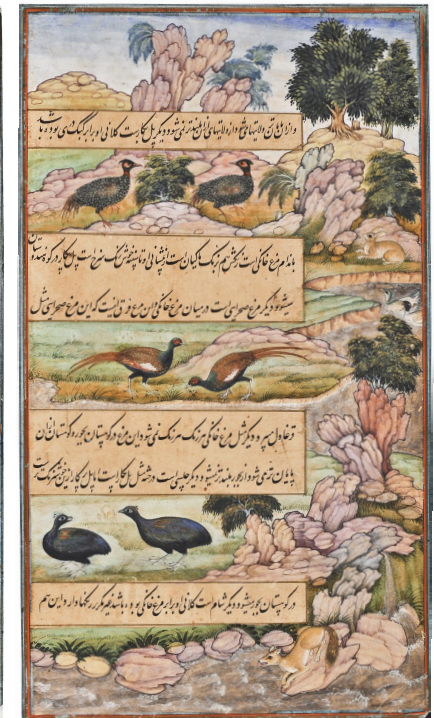 و از لمغان ولایتهای شود از ولایتهای از ان بلندتر نمی شود و دیگر پل پکارست کلانی او برابر کبک دری بوده باشد
مرغ خانگی است رنگش هم برنگ ماکیان است از پیشانی تا سینه خوش رنگ سرخ است پل پکار در کوه هندوستان
میشود و دیگر مرغ صحرای است در میان مرغ خانگی و این مرغ فرق اینست که این مرغ صحرای مثل
قرغاول می پرد و دیگر مثل مرغ خانگی هر رنگ هر رنگ نمی شود این مرغ در کوهستان بجور و کوهستان ازان
پایان تر می شود از بجور بلندتر نمیشود و دیگر چلسی است در جثه مثل پل پکار است اما پل پکار از رنگ
در کوهستان بجور میشود و دیگر شام است کلانی او برابر مرغ خانگی بوده باشد غیر مکرر رنگها دارد این هم